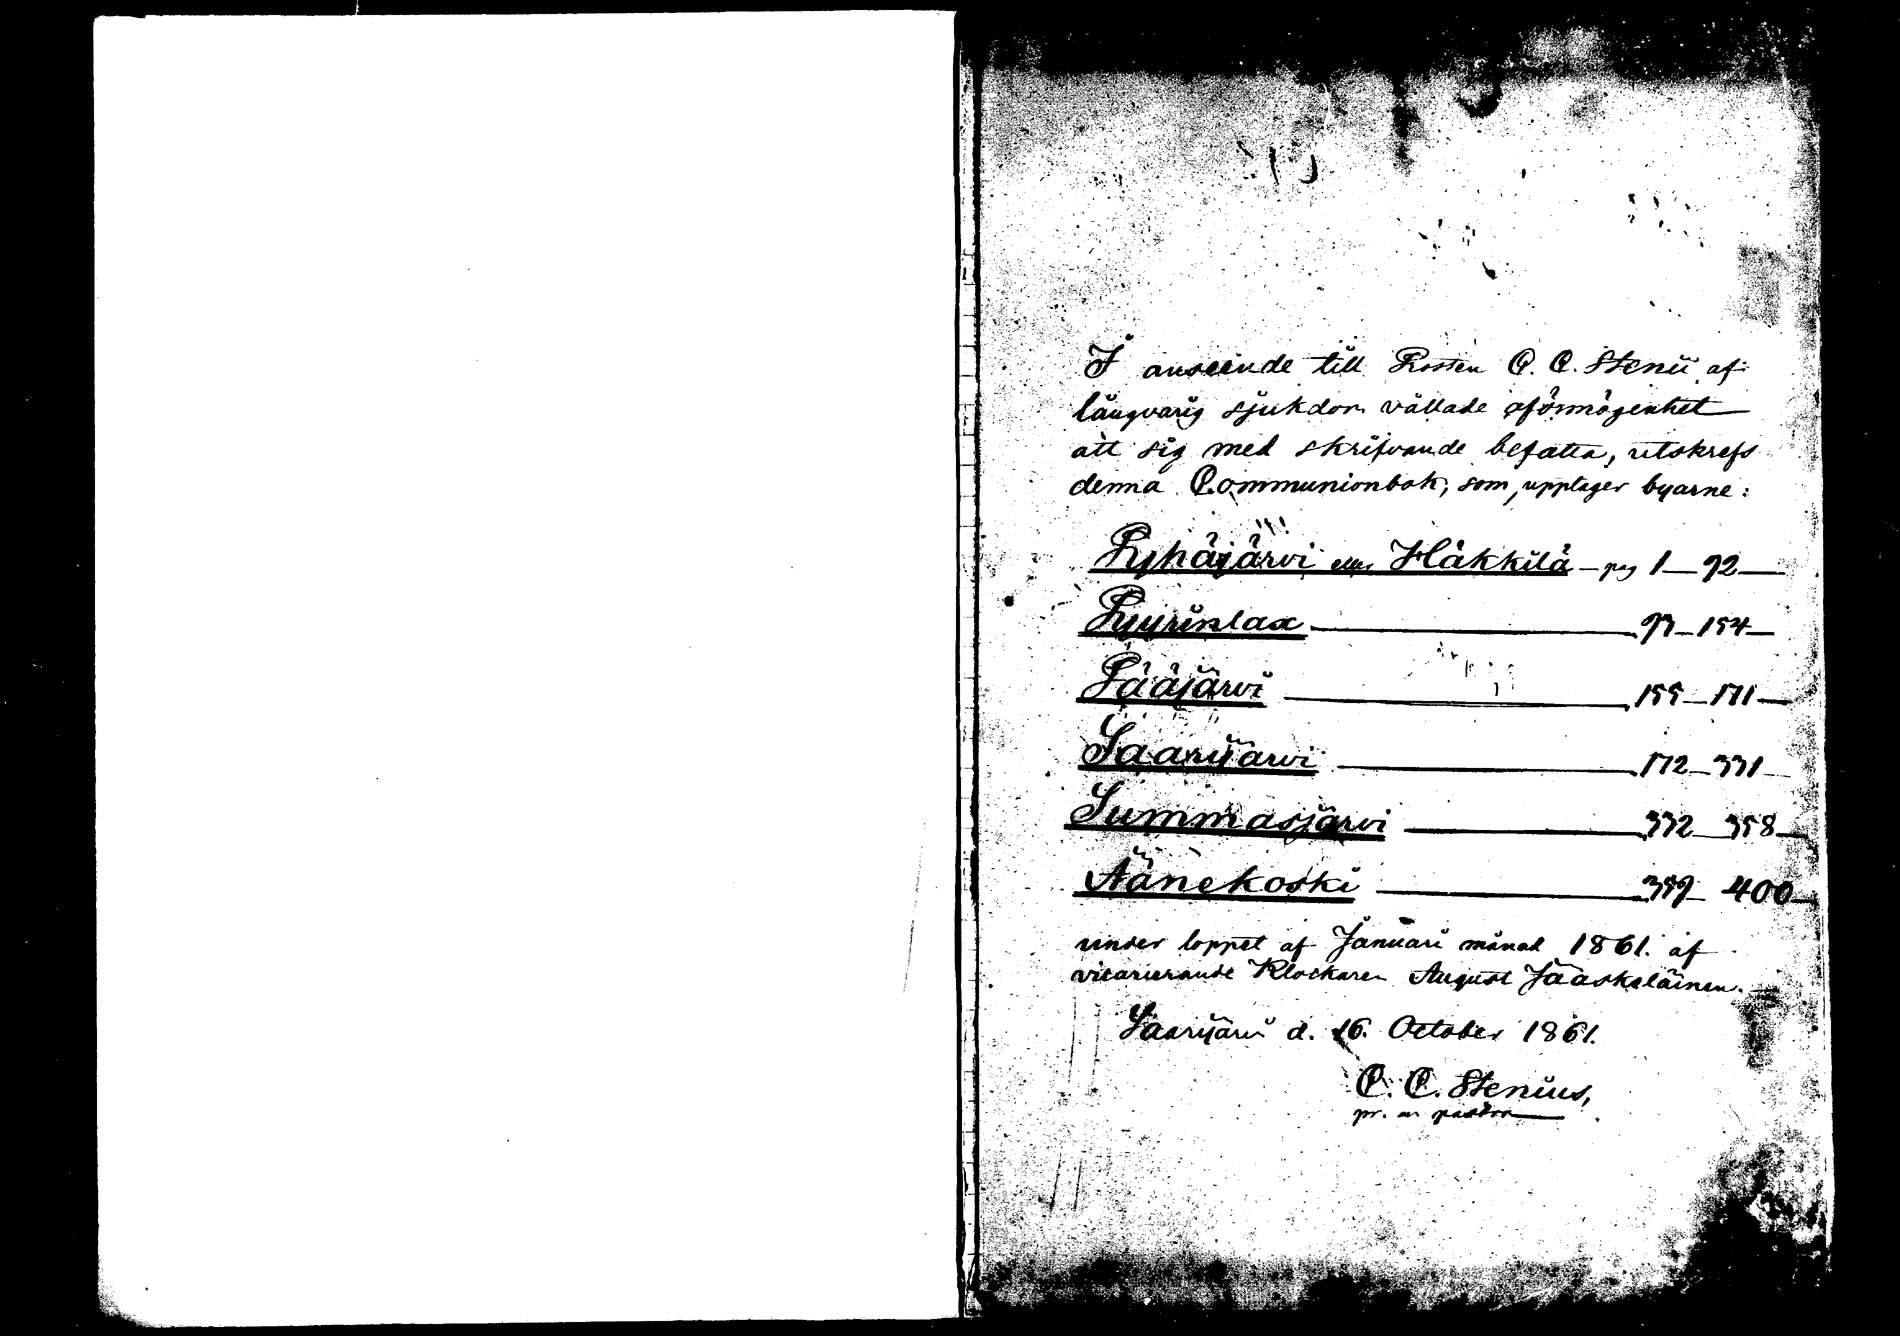 I anseende till Prosten C. C. Stenii af
långvarig sjukdom vållade oförmögenhet
att sig med skrifvande befatta, utskrefs
denna Communionbok, som upptager byarne:
Pyhäjärvi eller Häkkilä – pag 1 – 92 –
Pyyrinlax – 93 – 154 –
Pääjärvi – 155 – 171 –
Saarijärvi – 172 – 331
Summasjärvi – 332 – 358 –
Äänekoski – 359 – 400 –
under loppet af Januari månad 1861. af
vicarierande Klockaren August Jääskeläinen. –
Saarijärvi d. 16. October 1861.
C. C. Stenius,
pr. pastor